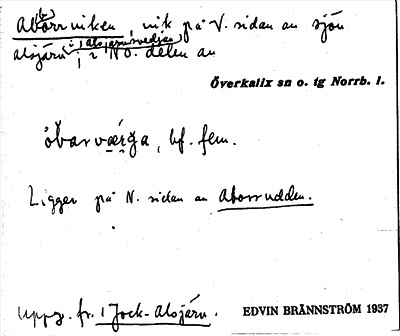 Ab(b)orrviken, vik på V. sidan av sjön
Alsjärv (i Alsjärvsvedjan) i NO. delen av
Överkalix sn o. tg Norrb. l.
åbarværga, bf. fem.
Ligger på N. sidan av Aborrudden.
Uppg. fr. 1 Jock-Alsjärv.
EDVIN BRÄNNSTRÖM 1937